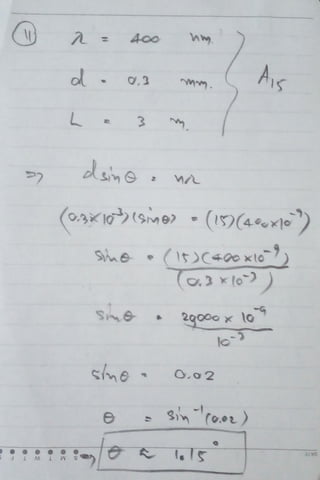 11 λ = 400 nm.
d = 0.3 mm. } A15
L = 3 m.
⇒ d sinθ = nλ
(0.3×10⁻³)(sinθ) = (15)(400×10⁻⁹)
sinθ = (15)(400×10⁻⁹)
(0.3×10⁻³)
sinθ = 20000 × 10⁻⁹
10⁻³
sinθ = 0.02
θ = sin⁻¹(0.02)
⇒ θ ≈ 1.15°